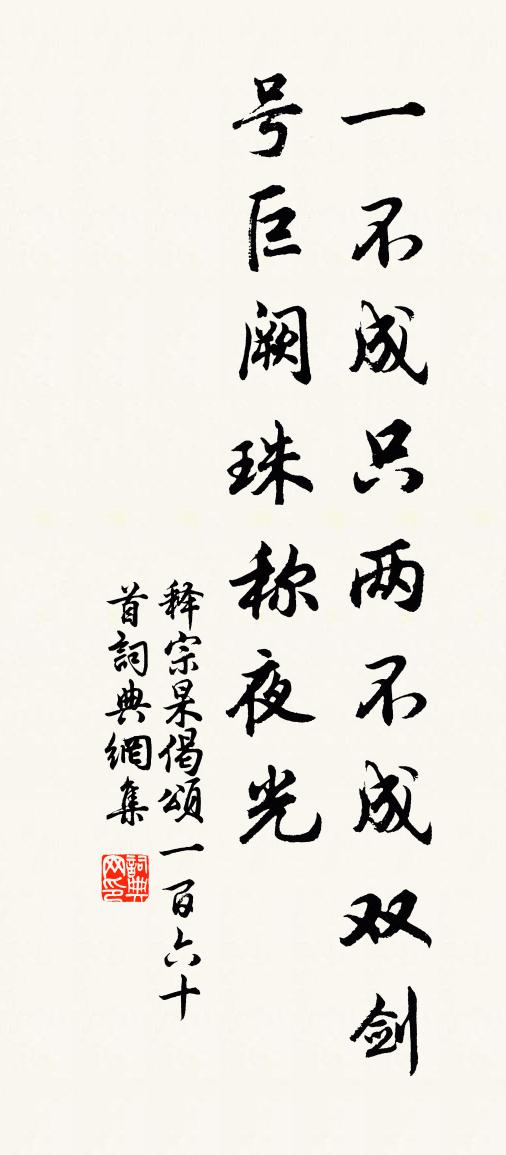 一不成只两不成双剑
号巨阙珠称夜光
释宗杲偈颂一百六十
首詞典網集
詞典
网印